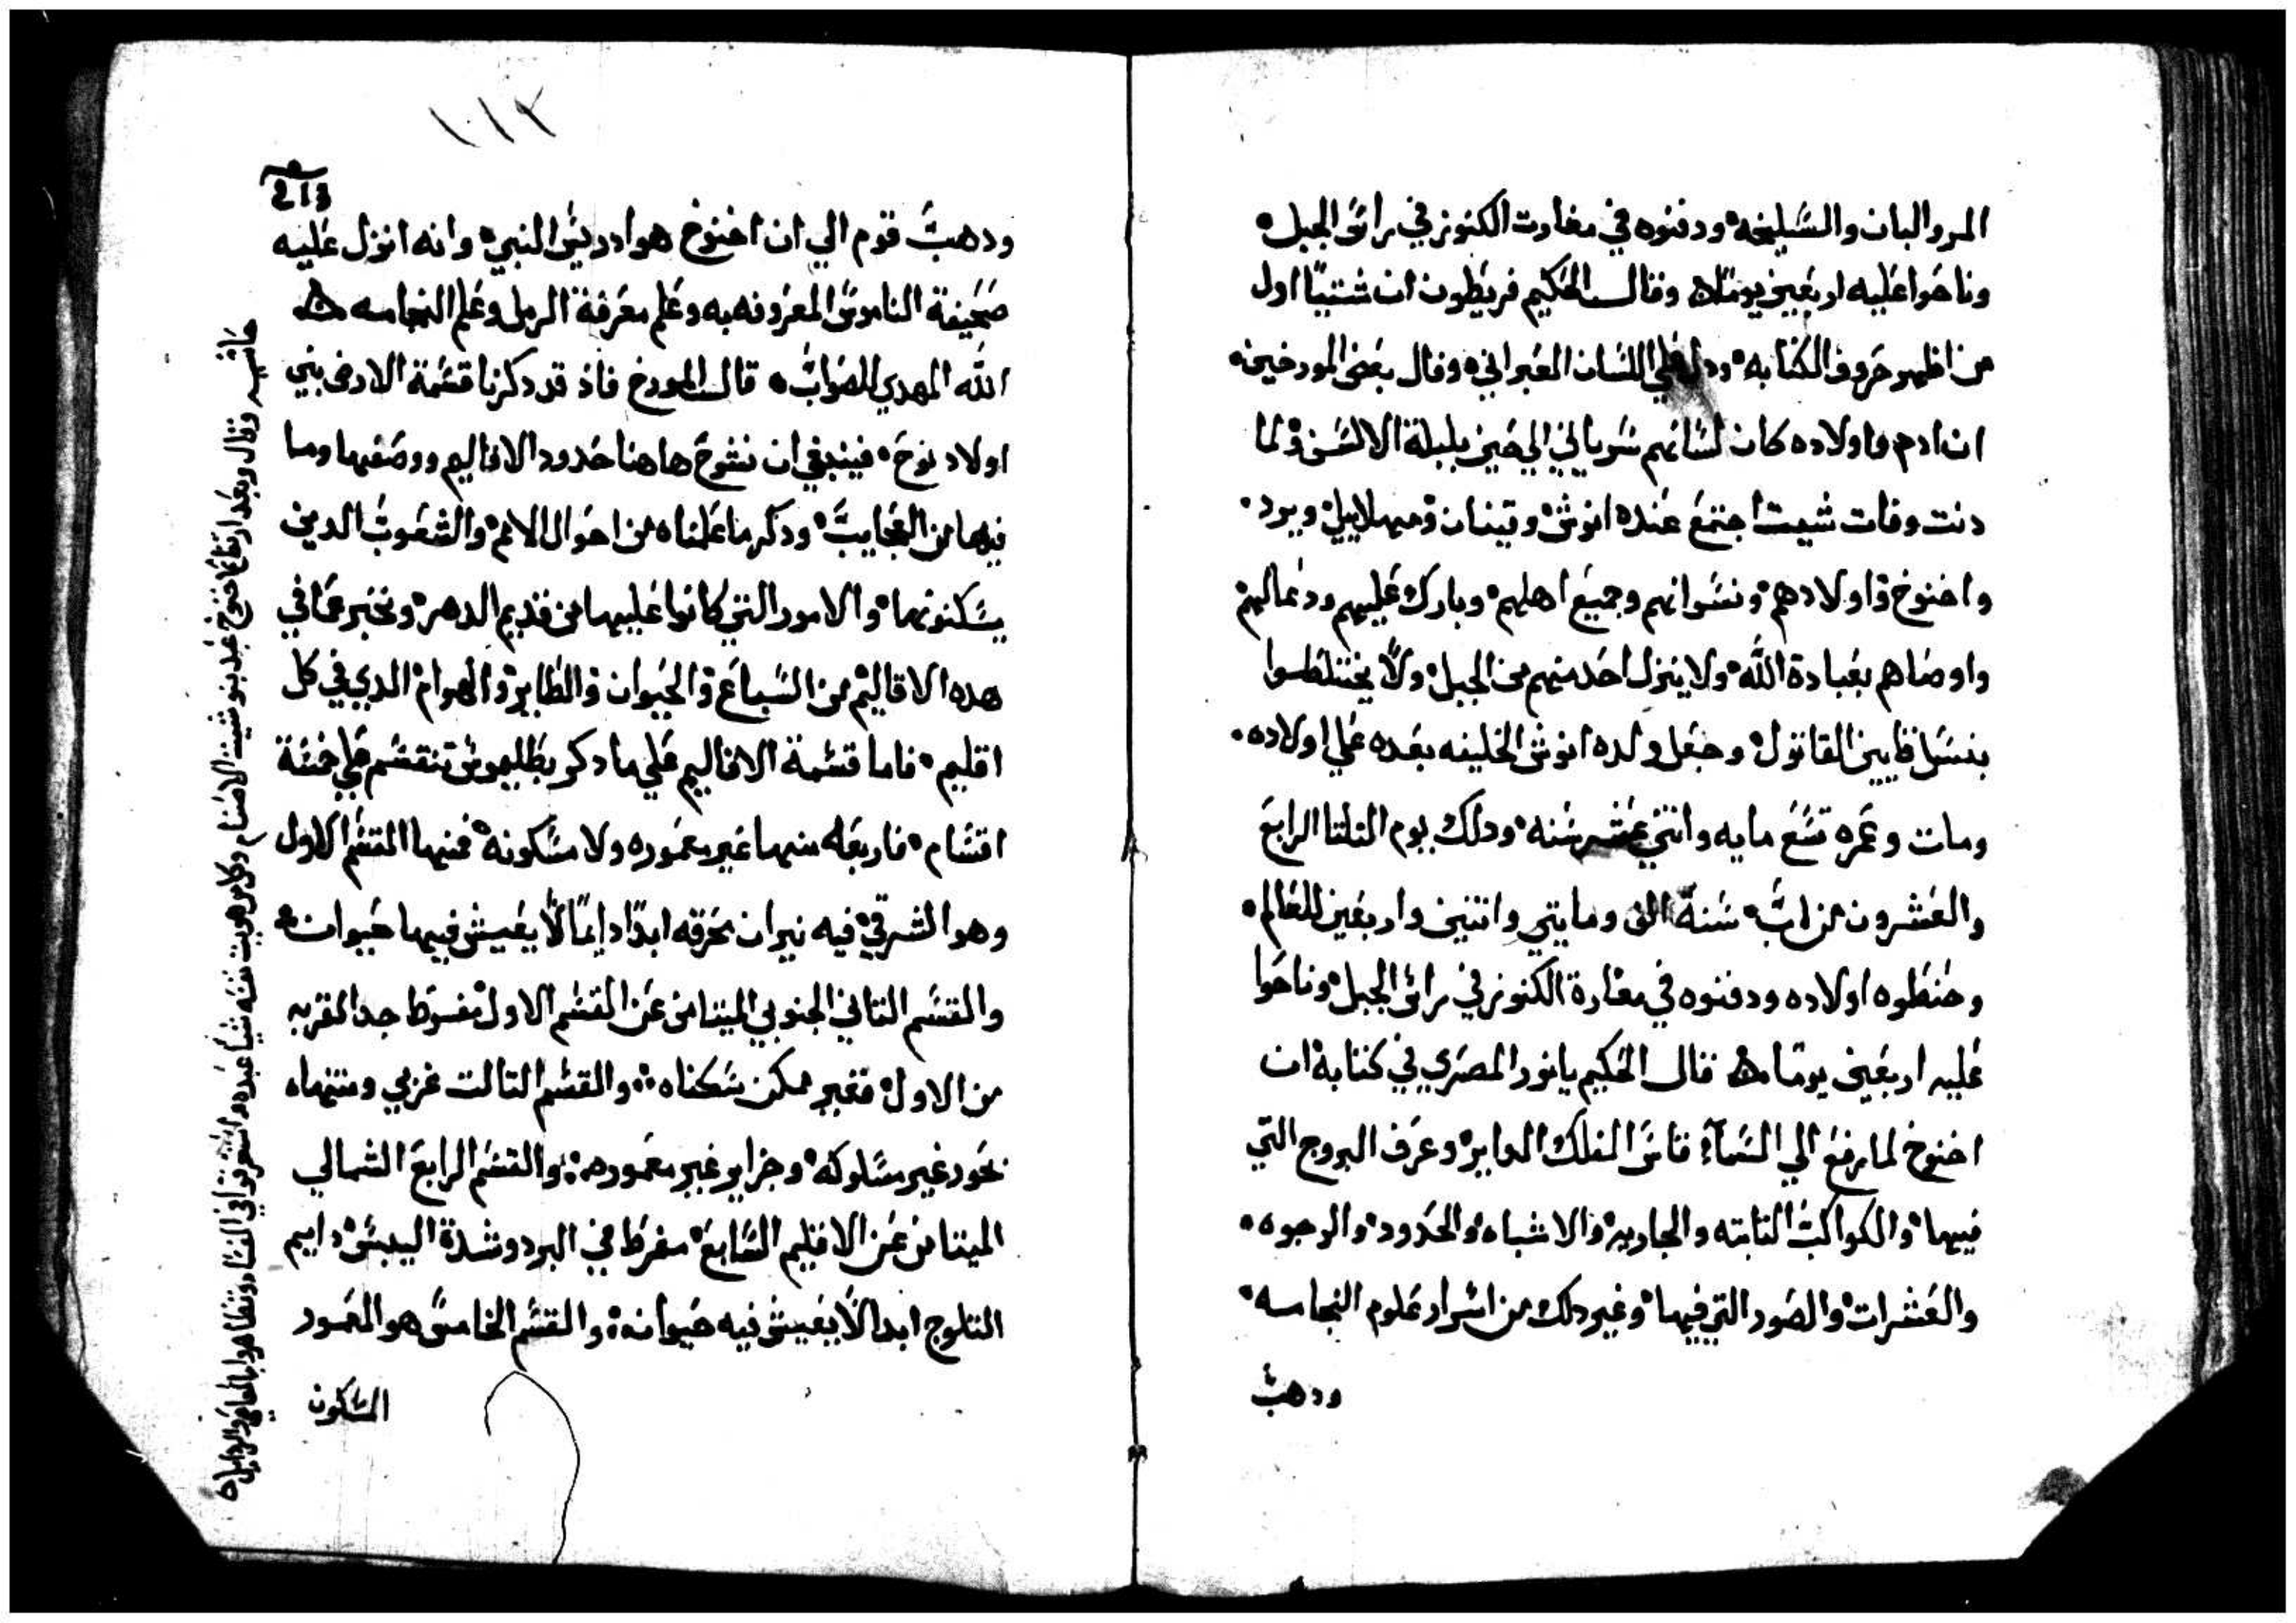 المر والبان والسليخه ودفنوه في مغارت الكنوز في راس الجبل
وناحوا عليه اربعين يومًا وقال الحكيم فريطون ان شتيًا اول
من اظهر حروف الكتابه ودل علي اللسان العبراني وقال بعض المورخين
ان ادم واولاده كان لسانهم سرياني الي حين بلبلة الالسن ولما
دنت وفات شيت اجتمع عنده انوش وقينان ومهلاييل ويرد
واخنوخ واولادهم ونسوانهم وجميع اهلهم وبارك عليهم ودعا لهم
واوصاهم بعبادة الله ولا ينزل احد منهم من الجبل ولا يختلطوا
بنسل قايين القاتول وجعل ولده انوش الخليفه بعده علي اولاده
ومات وعمره تسع مايه واتني عشر سنه ودلك يوم التلتا الرابع
والعشرون من اب سنة الف ومايتي واتنين واربعين للعالم
وحنطوه اولاده ودفنوه في مغارة الكنوز في راس الجبل وناحوا
عليه اربعين يومًا قال الحكيم يانور المصري في كتابه ان
اخنوخ لما رفع الي السمآء قاس الفلك الداير وعرف البروج التي
فيها والكواكب التابته والجاريه والاشباه والحدود والوجوه
والعشرات والصور التي فيها وغير دلك من اسرار علوم النجامه
ودهب
١١٢
213
ودهب قوم الي ان اخنوخ هو ادريس النبي وانه انزل عليه
صحيفة الناموس المعروفه به وعلم معرفة الرمل وعلم النجامه
الله المهدي للصواب قال المورخ فاذ قد دكرنا قسمة الارض بني
اولاد نوح فينبغي ان نشرح هاهنا حدود الاقاليم ووصفها وما
فيها من العجايب ودكر ما علمناه من احوال الامم والشعوب الدين
يسكنونها والامور التي كانوا عليها من قديم الدهر ونخبر عما في
هده الاقاليم من السباع والحيوان والطاير والهوام الدي في كل
اقليم فاما قسمة الاقاليم علي ما دكر بطليموس تنقسم علي خمسة
اقسام فاربعه منها غير معموره ولا مسكونه فمنها القسم الاول
وهو الشرقي فيه نيران تحرقه ابدًا دايمًا لا يعيش فيها حيوان
والقسم التاني الجنوبي الميتامن عن القسم الاول مفرط جدا لقربه
من الاول فغير ممكن سكناه والقسم التالت غربي ومنتهاه
بحور غير مسلوكه وجزاير غير معموره والقسم الرابع الشمالي
الميتامن عن الاقليم السابع مفرط في البرد وشدة اليبس دايم
التلوج ابدا لا يعيش فيه حيوان والقسم الخامس هو المعمور
المسكون
حاشيه وقال وبعد ارتفاع اخنوخ عبد بنو شيت الاصنام وكل من هويت نفسه شيًا عبده واستغرقوا في الفساد وتظاهروا بالمعاصي والردايل